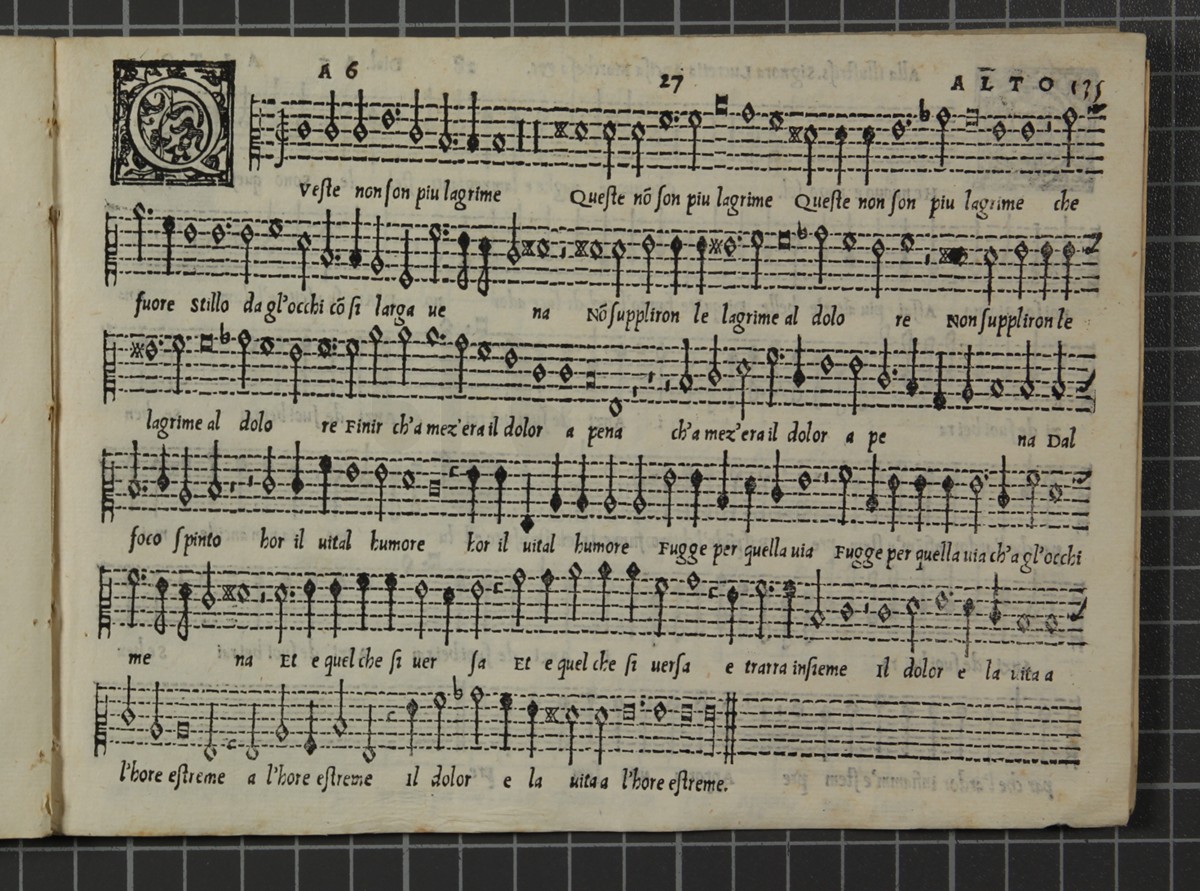 A 6 27 ALTO 135
Q
Veste non son piu lagrime Queste nõ son piu lagrime Queste non son piu lagrime che
fuore stillo da gl'occhi cõ si larga ue na Nõ suppliron le lagrime al dolo re Non suppliron le
lagrime al dolo re Finir ch'a mez'era il dolor a pena ch'a mez'era il dolor a pe na Dal
foco spinto hor il uital humore hor il uital humore Fugge per quella uia Fugge per quella uia ch'a gl'occhi
me na Et e quel che si uer sa Et e quel che si uersa e trarra insieme Il dolor e la uita a
l'hore estreme a l'hore estreme Il dolor e la uita a l'hore estreme.